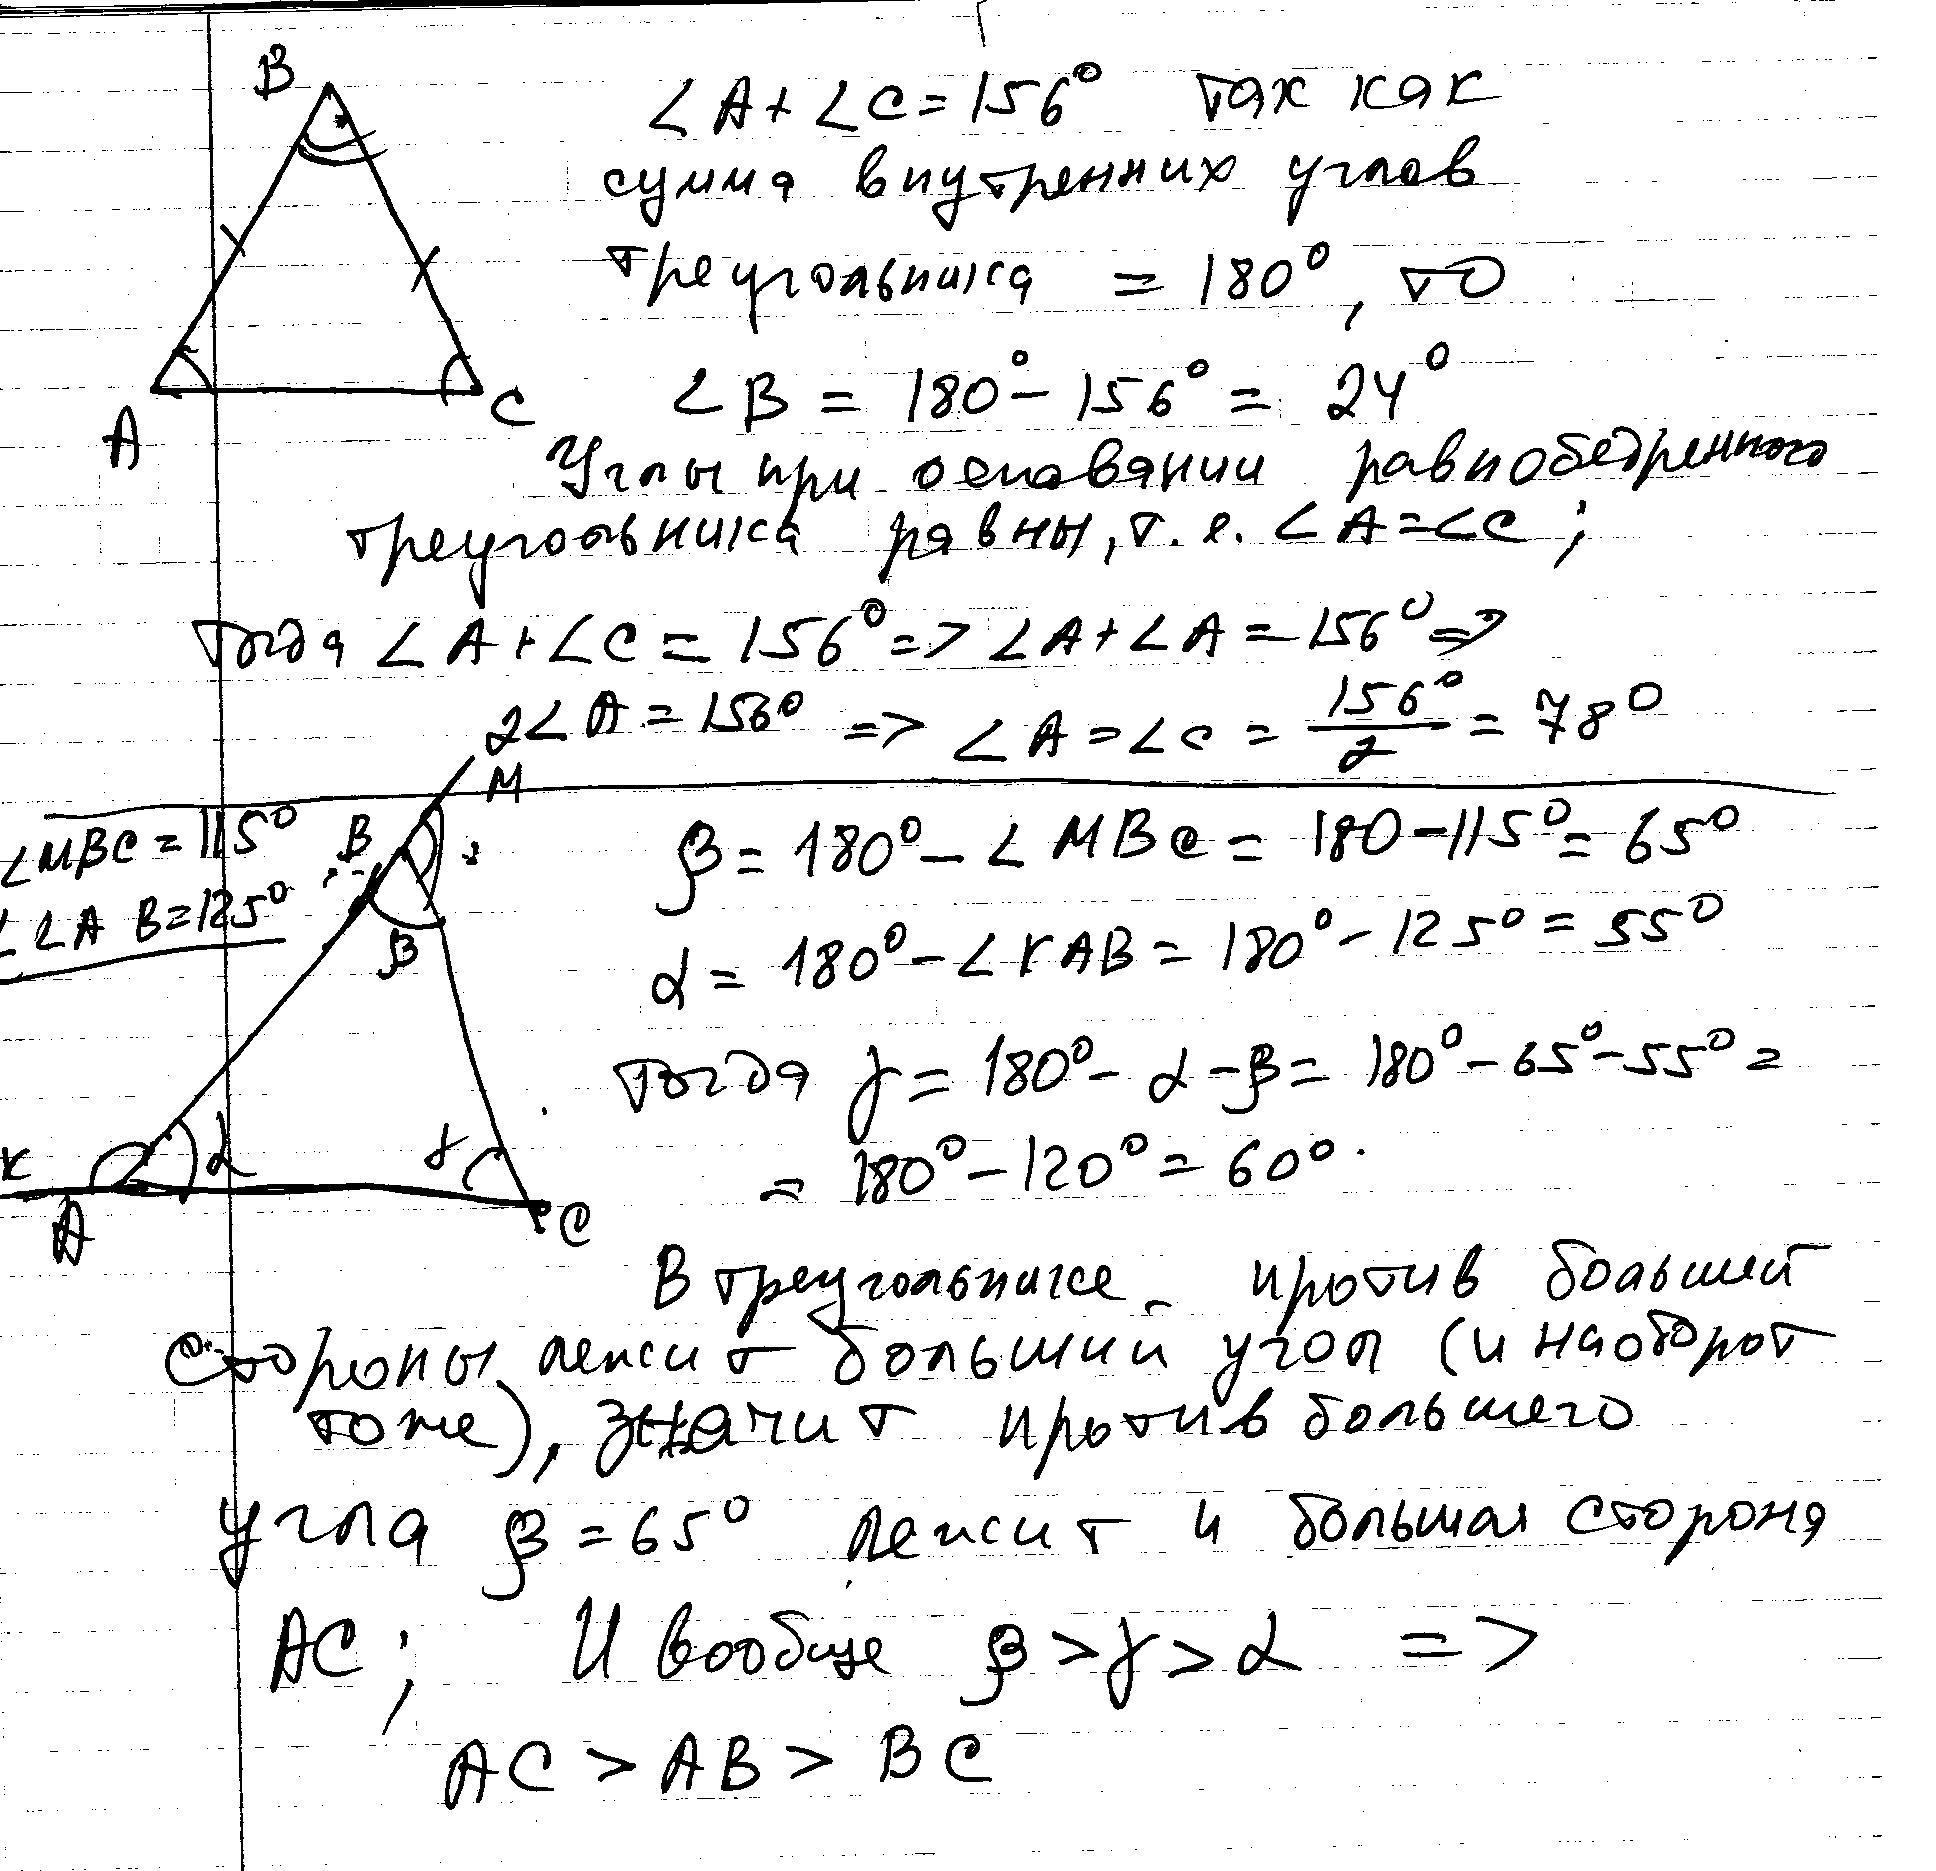 B
∠A+∠C=156° так как
сумма внутренних углов
треугольника = 180°, то
∠B = 180° - 156° = 24°
A
C
Углы при основании равнобедренного
треугольника равны, т. е. ∠A=∠C;
тогда ∠A+∠C=156° => ∠A+∠A=156° =>
2∠A=156° => ∠A=∠C= 156°/2 = 78°
M
∠MBC=115°
B
β=180°-∠MBC=180-115°=65°
∠A B=125°
β
α=180°-∠KAB=180°-125°=55°
тогда γ=180°-α-β=180°-65°-55°=
K
α
γ
=180°-120°=60°.
A
C
В треугольнике против большей
стороны лежит больший угол (и наоборот
тоже), значит против большего
угла β=65° лежит и большая сторона
AC; И вообще β>γ>α =>
AC > AB > BC